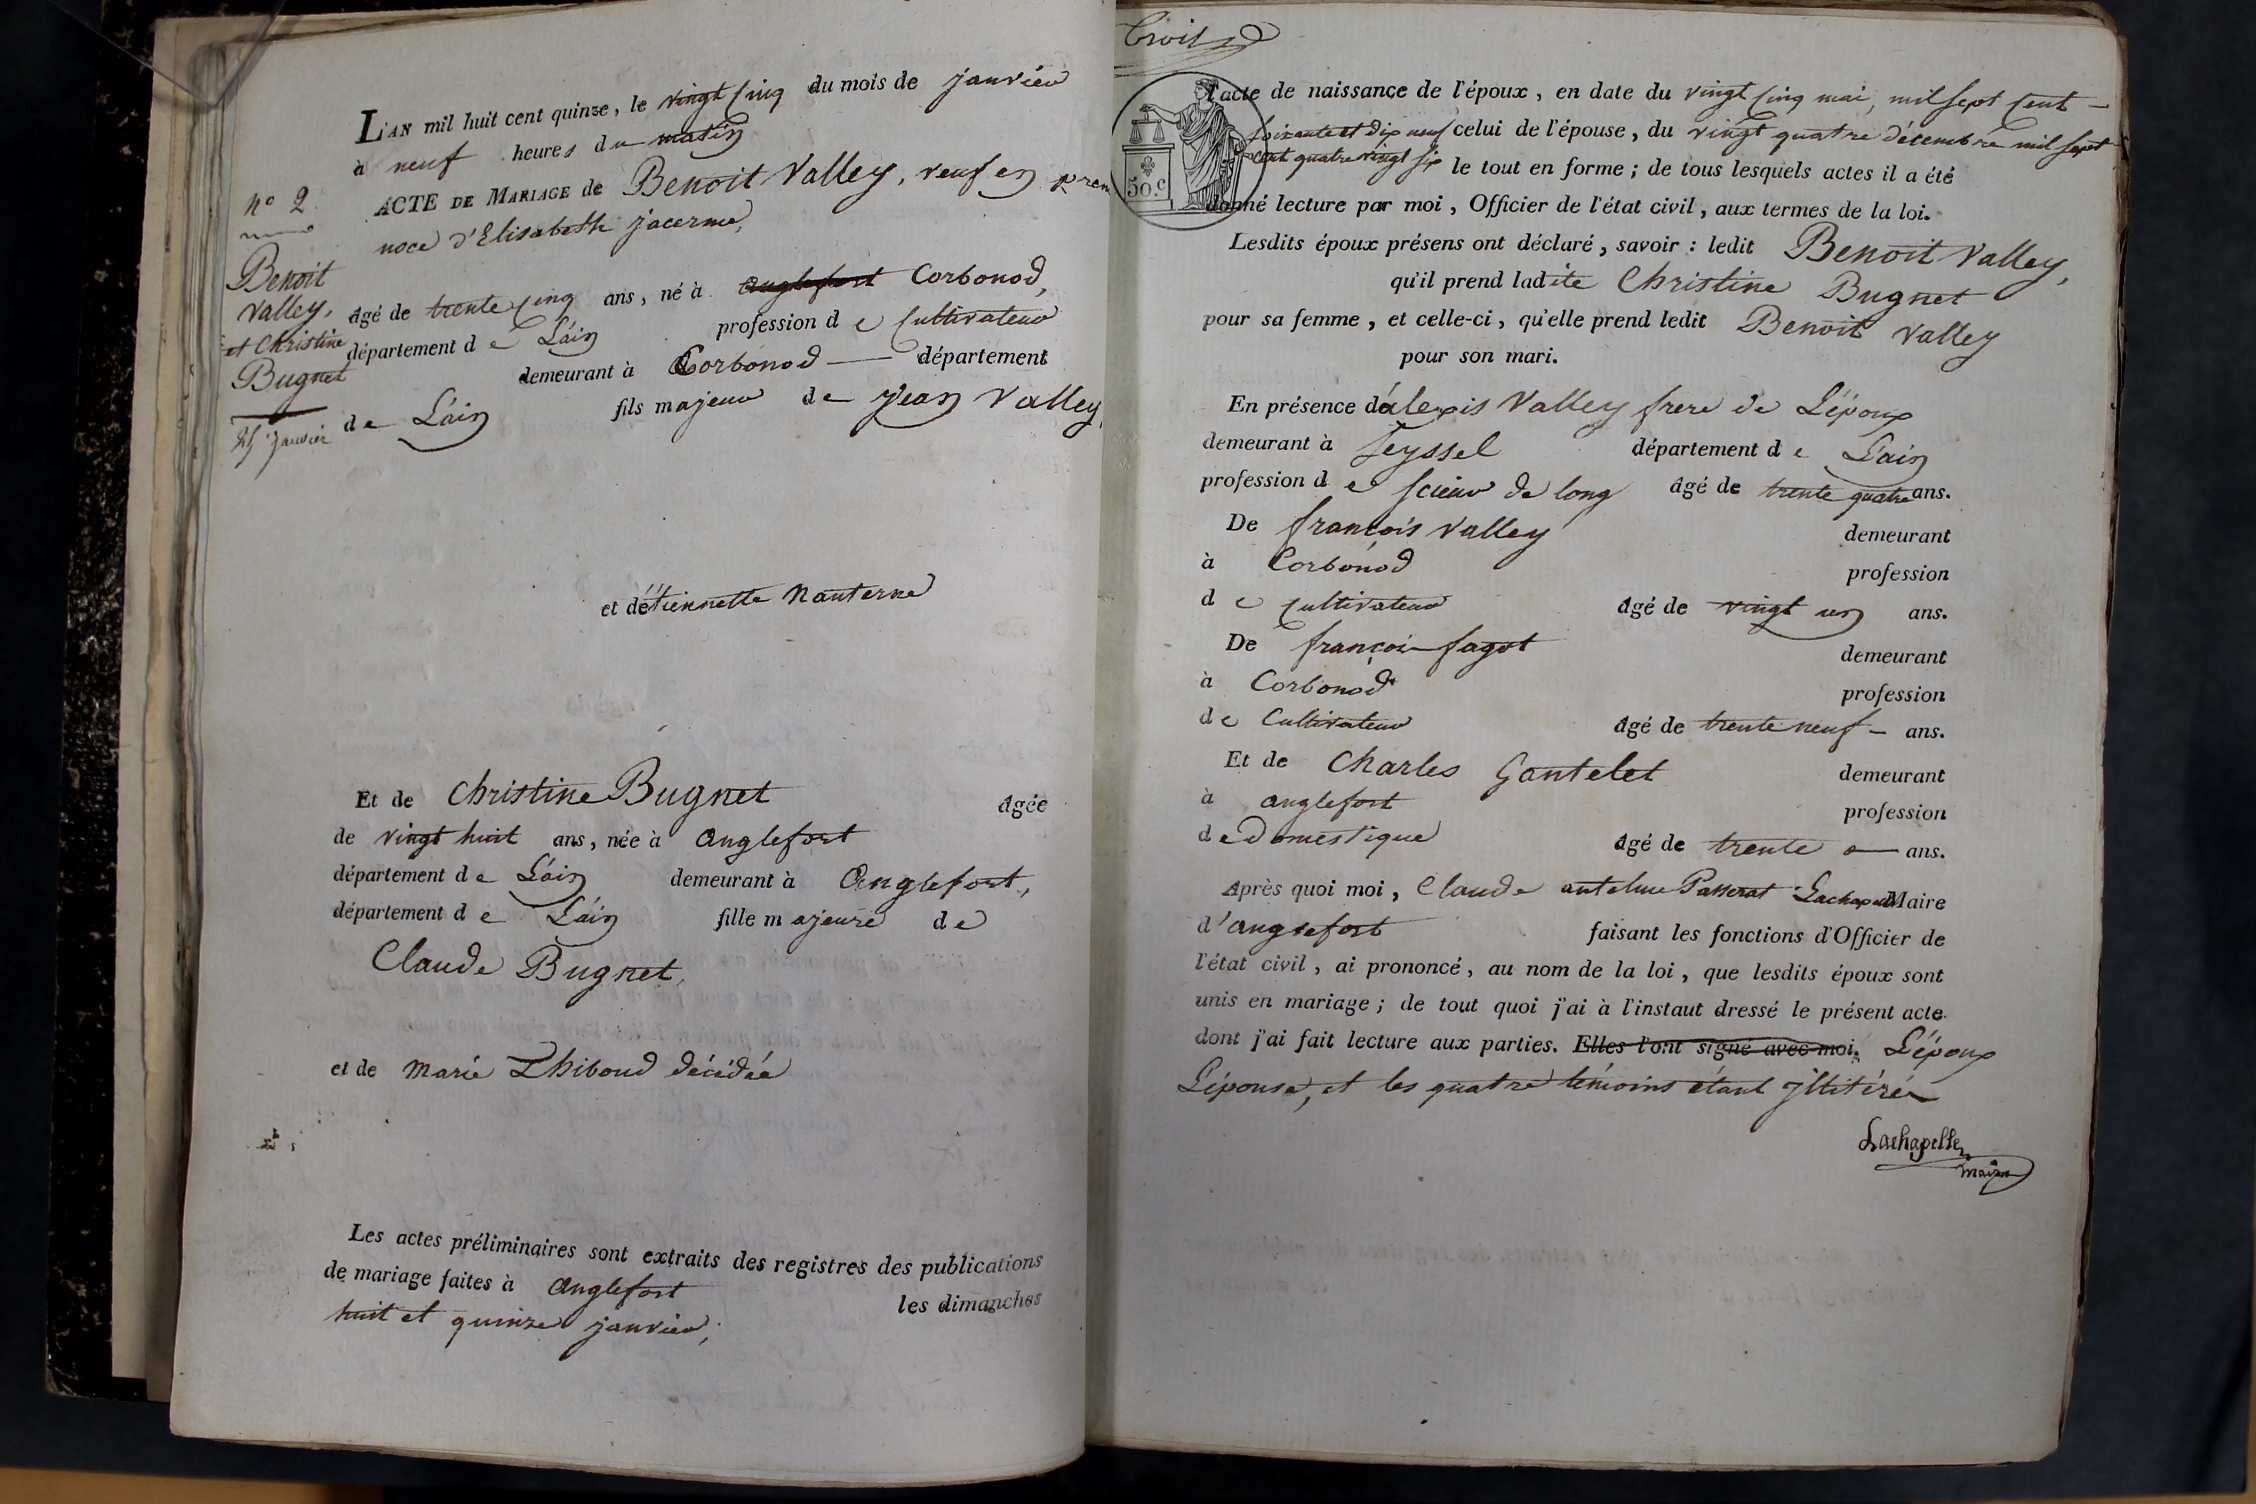 L'AN mil huit cent quinze, le vingt cinq du mois de janvier
à neuf heures du matin
ACTE DE MARIAGE de Benoit Valley, veuf en prem
noce d'Elisabeth jacerme,
âgé de trente cinq ans, né à anglefort Corbonod,
département de L'ain profession de Cultivateur
demeurant à Corbonod département
de L'ain fils majeur de jean Valley,
et d'étiennette Nanterne
Et de Christine Bugnet âgée
de vingt huit ans, née à anglefort
département de L'ain demeurant à anglefort,
département de L'ain fille majeure de
Claude Bugnet,
et de marie Thiboud décédée
Les actes préliminaires sont extraits des registres des publications
de mariage faites à anglefort les dimanches
huit et quinze janvier,
n° 2
Benoit
Valley,
et Christine
Bugnet
25 janvier
50.c
l'acte de naissance de l'époux, en date du vingt cinq mai, mil sept cent
soixante et dix neuf celui de l'épouse, du vingt quatre décembre mil sept
cent quatre vingt six le tout en forme; de tous lesquels actes il a été
donné lecture par moi, Officier de l'état civil, aux termes de la loi.
Lesdits époux présens ont déclaré, savoir : ledit Benoit Valley,
qu'il prend ladite Christine Bugnet
pour sa femme, et celle-ci, qu'elle prend ledit Benoit Valley
pour son mari.
En présence d'alexis Valley frere de L'époux
demeurant à Seyssel département de L'ain
profession de scieur de long âgé de trente quatre ans.
De françois Valley demeurant
à Corbonod profession
de cultivateur âgé de vingt un ans.
De françois fagot demeurant
à Corbonod profession
de Cultivateur âgé de trente neuf ans.
Et de Charles Gantelet demeurant
à anglefort profession
de domestique âgé de trente ans.
Après quoi moi, Claude antelme Passerat Lachapelle Maire
d'anglefort faisant les fonctions d'Officier de
l'état civil, ai prononcé, au nom de la loi, que lesdits époux sont
unis en mariage; de tout quoi j'ai à l'instaut dressé le présent acte
dont j'ai fait lecture aux parties. Elles l'ont signé avec moi. L'époux
L'épouse, et les quatre témoins étant jllitérés
Lachapelle
maire